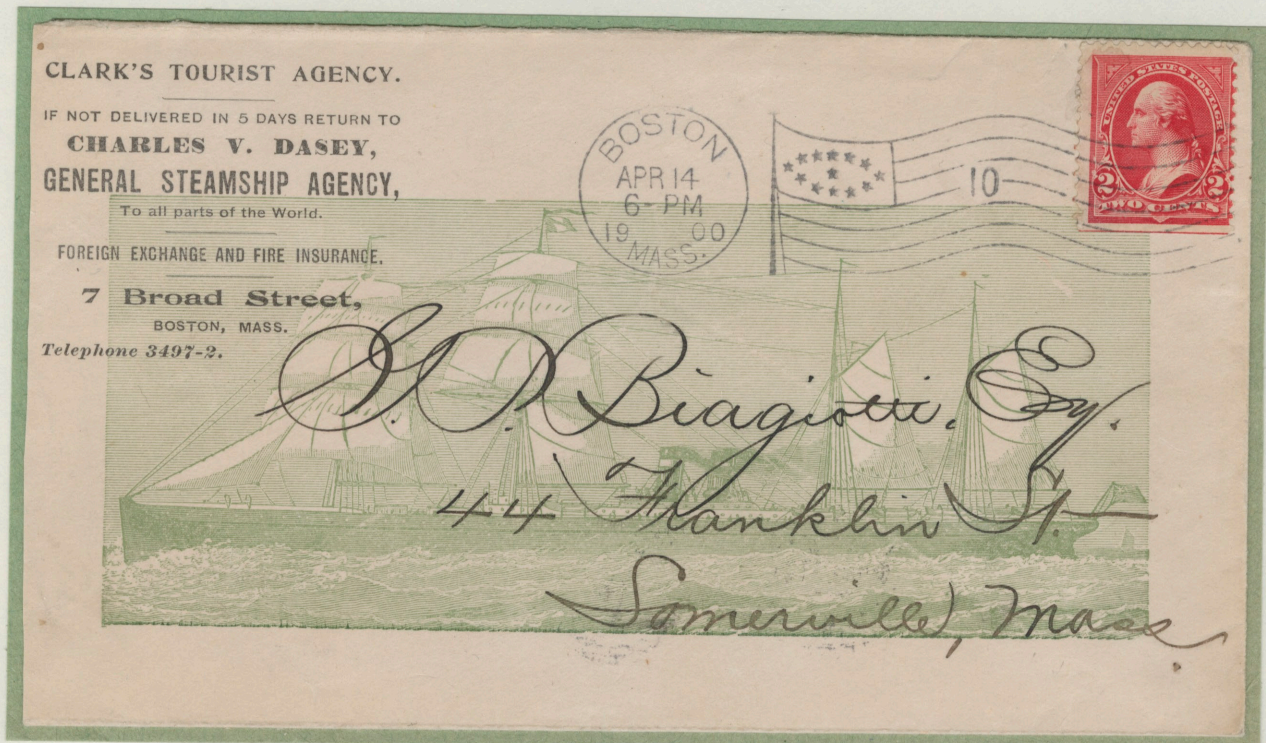 CLARK'S TOURIST AGENCY.
IF NOT DELIVERED IN 5 DAYS RETURN TO
CHARLES V. DASEY,
GENERAL STEAMSHIP AGENCY,
To all parts of the World.
FOREIGN EXCHANGE AND FIRE INSURANCE.
7 Broad Street,
BOSTON, MASS.
Telephone 3497-2.
BOSTON
APR 14
6- PM
19 00
MASS.
10
UNITED STATES POSTAGE
2 2
TWO CENTS
G. P. Biagiotti, Esq.
44 Franklin St.
Somerville, Mass